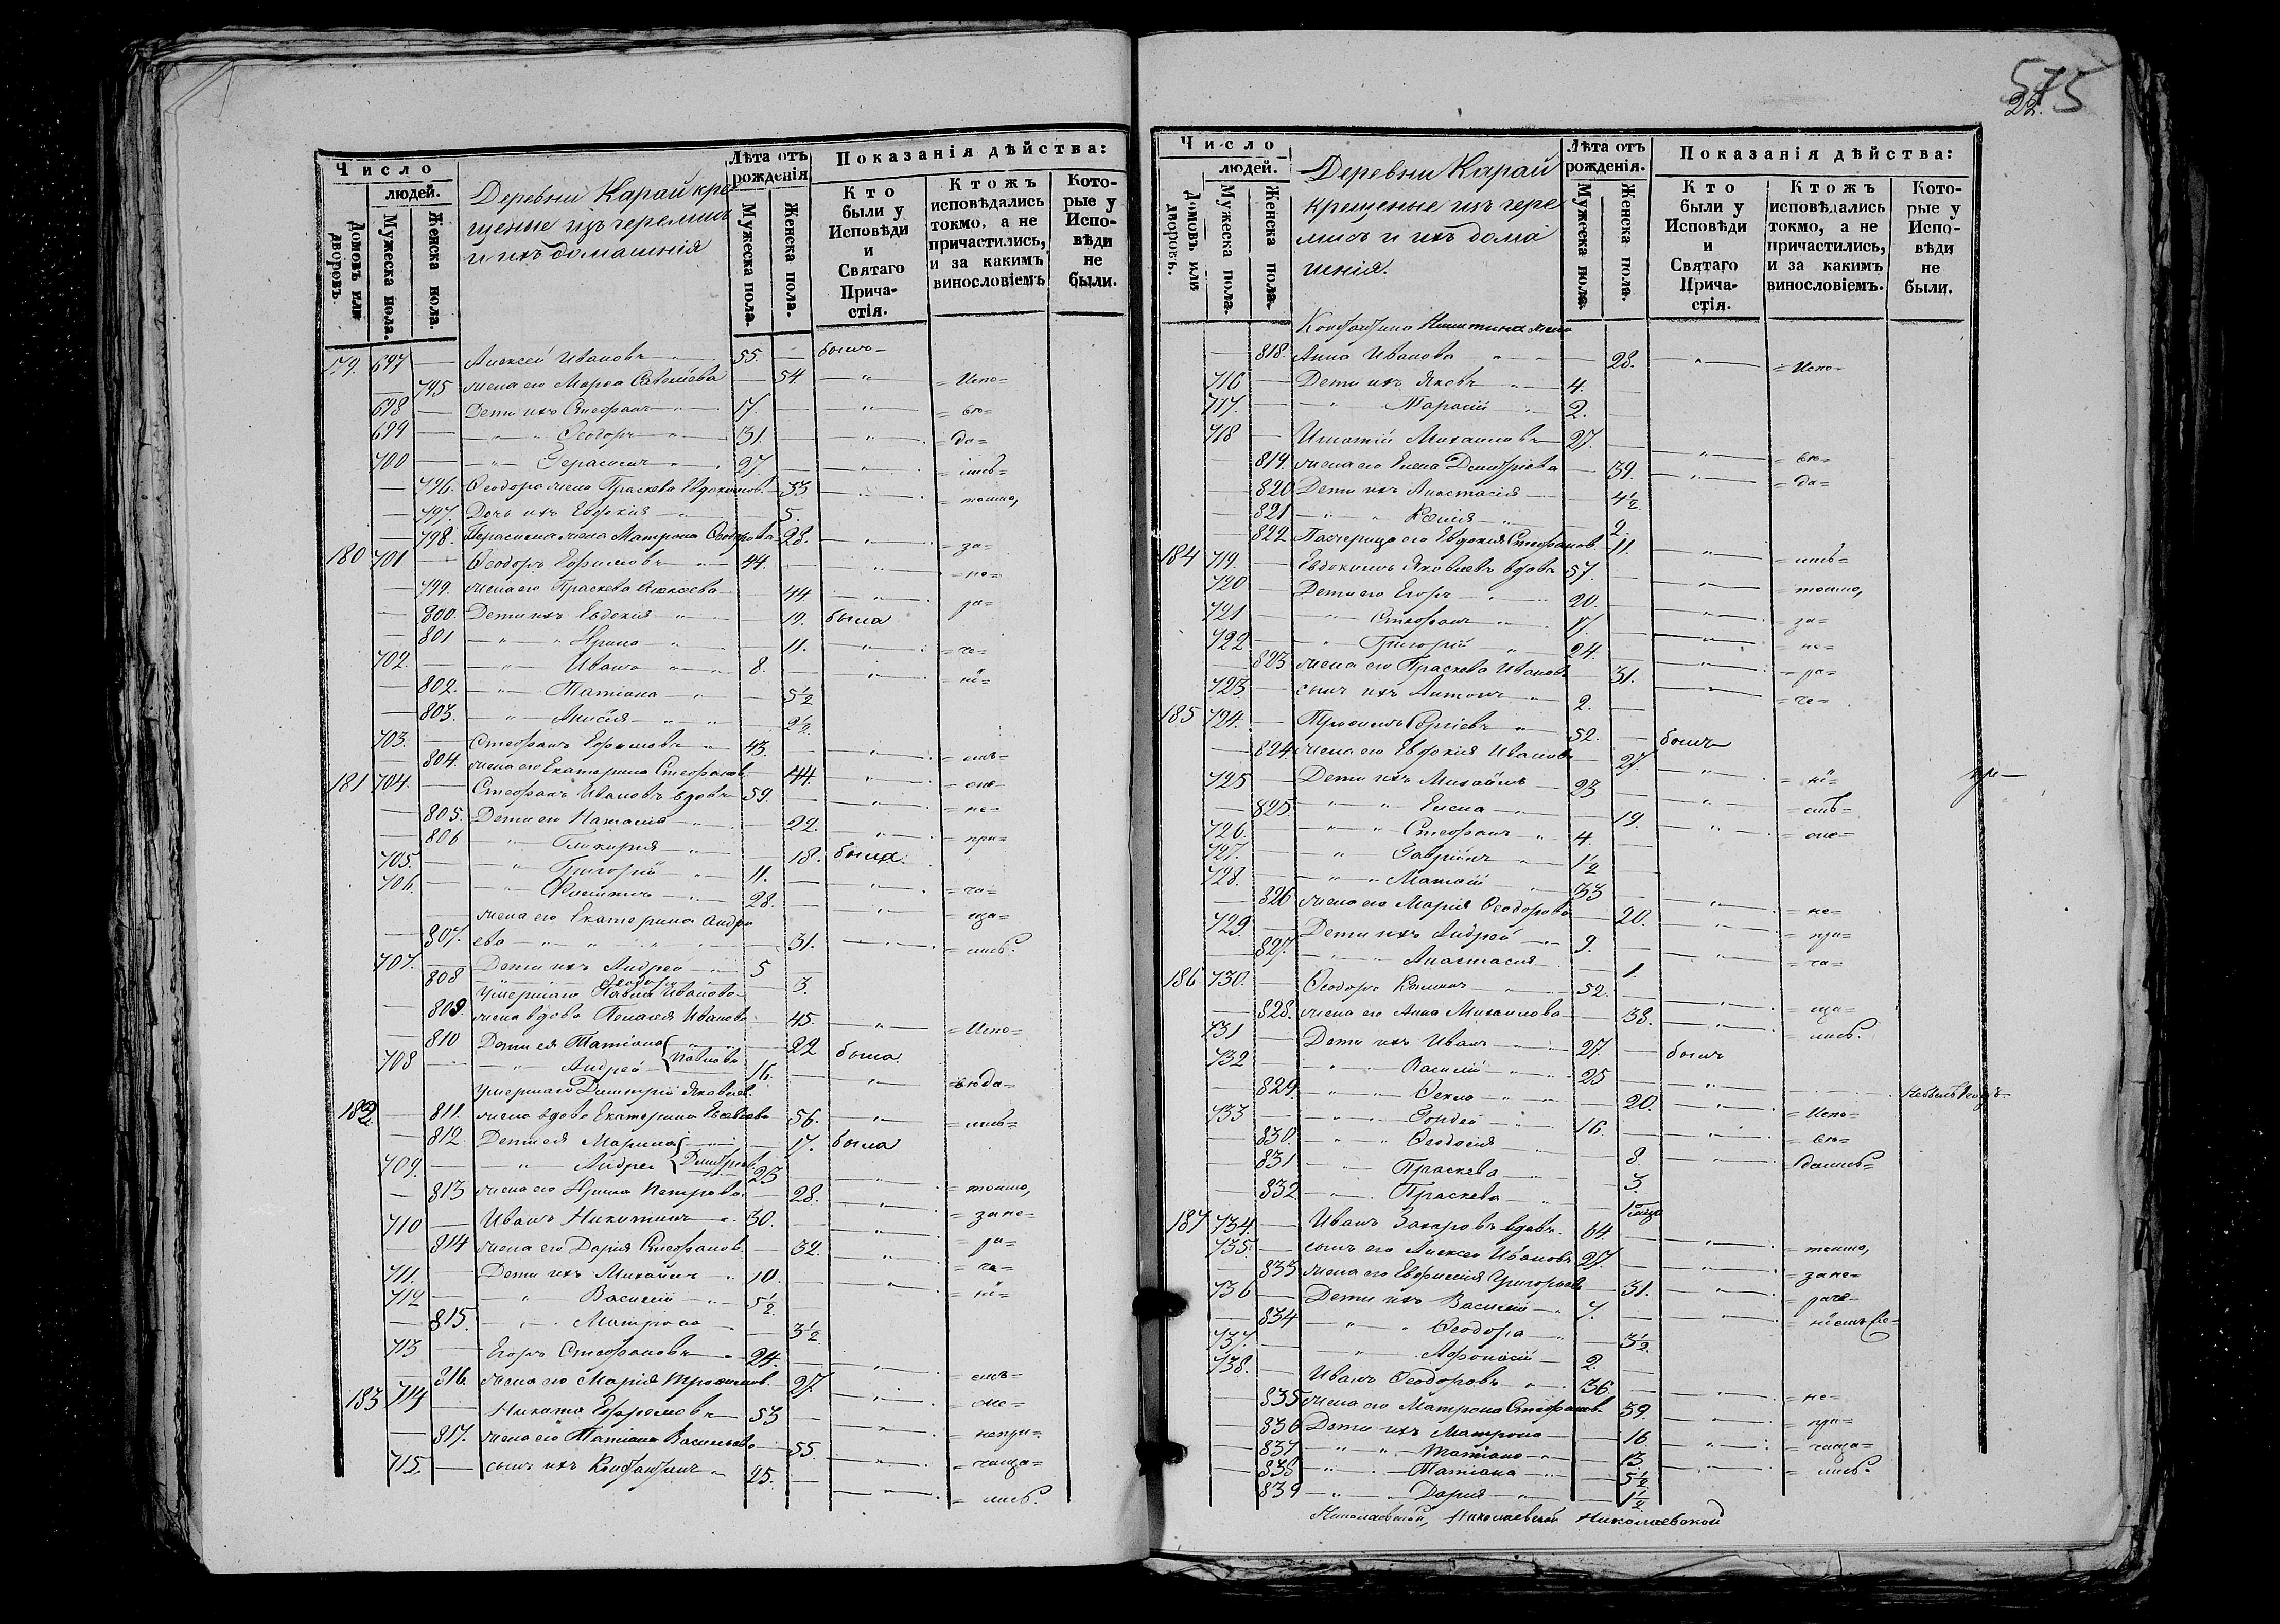 Число
людей.
Домовъ или дворовъ.
Мужеска пола.
Женска пола.
Деревни Карай кре
щеные изъ черемисъ
и ихъ домашнія
Лѣта отъ рожденія
Мужеска пола.
Женска пола.
Показанія дѣйства:
Кто были у Исповѣди и Святаго Прича-стія.
Ктожъ исповѣдались токмо, а не причастились, и за какимъ винословіемъ
Кото-рые у Испо-вѣди не были.
179. 697 — Алексей Ивановъ 55. — былъ
— 795 жена его Марфа Савельева — 54. = Испо=
698 — Дети ихъ Стефанъ 17. — = вѣ=
699 — Феодоръ 31. — = да=
700 — Герасимъ 27. — = лись=
— 796. Феодора жена Праскева Евдокимов. — 33 = токмо,
— 797. Дочь ихъ Евфимія — 5.
— 798. Герасима жена Матрона Феодорова — 28. = за=
180 701 — Феодоръ Ефимовъ 44. — = не=
— 799. жена его Праскева Алексеева — 44 = ра=
— 800. Дети ихъ Евдокия 19. была
— 801 Ирина 11. = че=
702. — Иванъ 8. — = ні=
— 802. Татіана — 5½
— 803. Анисія — 2½
703. — Стефанъ Ефимовъ 43. — = емъ=
— 804. жена его Екатерина Стефанов. — 44. = оне=
181 704. — Стефанъ Ивановъ вдовъ 59. — = не=
— 805. Дети его Наталия — 22. = при=
— 806 Гликерія — 18. была
705. — Григорій 11. —
706. — Филиппъ 28. — = ча=
жена его Екатерина Андре = ща=
— 807. ева 31. = лись.
707. — Дети ихъ Андрей 5 —
— 808 Феодора — 3.
Умершаго Павла Иванова
— 809. жена вдова Пелагея Иванова — 45. = Испо=
— 810 Дети ея Татіана 22 была
708 — Андрей Павловы 16.
Умершаго Димитрія Яковлев. = вѣда=
182. — 811. жена вдова Екатерина — 56. = лись=
— 812. Дети ея Марина — 17. была
709. — Андрей Димитріев. 23
— 813 жена его Ирина Петрова — 28. = токмо,
710 — Иванъ Никитинъ 30. — = зане=
— 814 жена его Дарія Стефанов. — 32. = ра=
711. — Дети ихъ Михаилъ 10. — = че=
712 — Василій 5½ = ні=
— 815. Матрона — 3½
713 — Егоръ Стефановъ 24. —
— 816. жена его Марія Трофимов. — 27. = емъ=
183 714 — Никита Ефремовъ 53 — = оне=
— 817. жена его Татіана Васильева — 55. = непри=
715. — сынъ ихъ Константинъ 25. — = чаща=
= лись.
575
22.
Число
людей.
Домовъ или дворовъ.
Мужеска пола.
Женска пола.
Деревни Карай
крещеные изъ чере
мисъ и ихъ дома
шнія.
Лѣта отъ рожденія.
Мужеска пола.
Женска пола.
Показанія дѣйства:
Кто были у Исповѣди и Святаго Прича-стія.
Ктожъ исповѣдались токмо, а не причастились, и за какимъ винословіемъ.
Кото-рые у Испо-вѣди не были.
Константина Никитина жена
— 818. Анна Иванова — 28. = Испо=
716 — Дети ихъ Яковъ 4. —
717. — Тарасій 2. —
718 — Игнатій Михаиловъ 27. — = вѣ=
— 819. жена его Елена Димитріева — 39. = да=
— 820 Дети ихъ Анастасія — 4½
— 821 Ксенія — 2.
— 822 Падчерица его Евдокія Стефанов. — 11. = лись=
184 719. — Евдокимъ Яковлевъ вдовъ 57. — = токмо,
720 — Дети его Егоръ 20. —
721 — Стефанъ 17. — = за=
722 — Григорій 24. — = не=
— 823 жена его Праскева Иванов. — 31. = ра=
723 — сынъ ихъ Антонъ 2. — = че=
185 724. — Трофимъ Сергіевъ 52. — былъ
— 824. жена его Евфимія Иванов. — 27. = ні=
725 — Дети ихъ Михаилъ 23 —
— 825. Елена — 19. = емъ=
726. — Стефанъ 4. — = оне=
727. — Гавріилъ 1½
728. — Матвій 33 —
— 826 жена его Марія Феодорова — 20. = не=
729. — Дети ихъ Андрей 9. — = при=
— 827. Анастасия — 1. = ча=
186 730. — Феодоръ 52. —
— 828. жена его Анна Михаилова — 38. = ща=
731 — Дети ихъ Иванъ 27. — былъ = лись.
732 — Василій 25 —
— 829. Фекла — 20.
733 — Гордей 16. — = Испо=
— 830. Феодосія — 8. = вѣ=
— 831 Праскева — 3. = дались=
— 832 Праскева
187 734. — Иванъ Захаровъ вдовъ 64. — = токмо,
735. — сынъ его Алексей Ивановъ 27. —
— 833 жена его Евфимія Григорьев. — 31. = зане=
736 — Дети ихъ Василій 7. — = раче=
— 834 Феодора — 3½
737. — Афонасій 2. —
738. — Иванъ Феодоровъ 36. — = не=
— 835 жена его Матрона Стефанов. — 39. = при=
— 836 Дети ихъ Матрона — 16 = чаща=
— 837 Татіана — 13. = лись.
— 838 Татіана — 5½
— 839 Дарія — 1½
Николаевской, Николаевской Николаевской